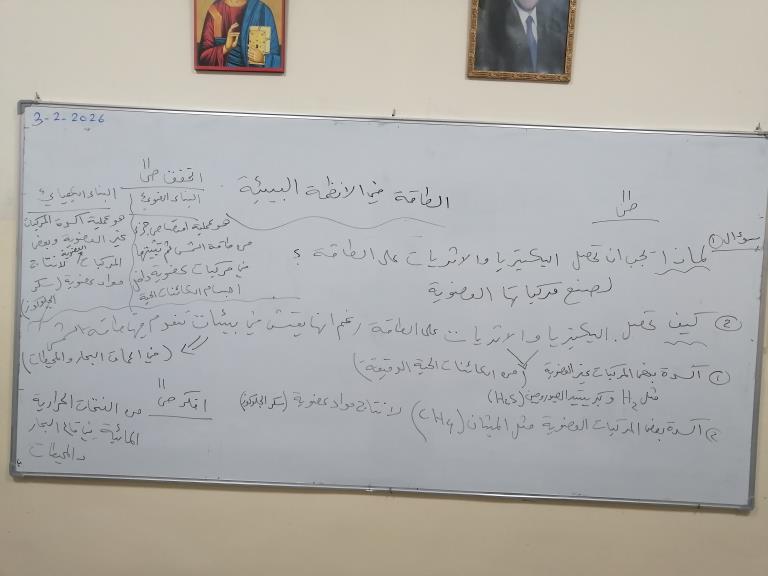 3-2-2026
الطاقة في الانظمة البيئية
ص ١١
سؤال ١
لماذا تجب ان تحصل البكتيريا والاثريات على الطاقة ؟
لصنع مركباتها العضوية
② كيف تحصل البكتيريا والاثريات على الطاقة رغم انها يعيش في بيئات تنعدم فيها طاقة الشمس
(في اعماق البحار والمحيطات)
① اكسدة بعض المركبات غير العضوية (من الكائنات الحية الدقيقة)
مثل H₂ وكبريتيد الهيدروجين (H₂S)
② اكسدة بعض المركبات العضوية مثل الميثان (CH₄) لانتاج مواد عضوية (سكر الجلوكوز)
اتحقق ص ١١
البناء الضوئي
هو عملية امتصاص جزء
من طاقة الشمس ثم تثبيتها
في مركبات عضوية داخل
اجسام الكائنات الحية
البناء الكيميائي
هو عملية اكسدة المركبات
غير العضوية وبعض
المركبات العضوية لانتاج
مواد عضوية (سكر
الجلوكوز)
افكر ص ١١
من الفتحات الحرارية
المائية في قاع البحار
والمحيطات